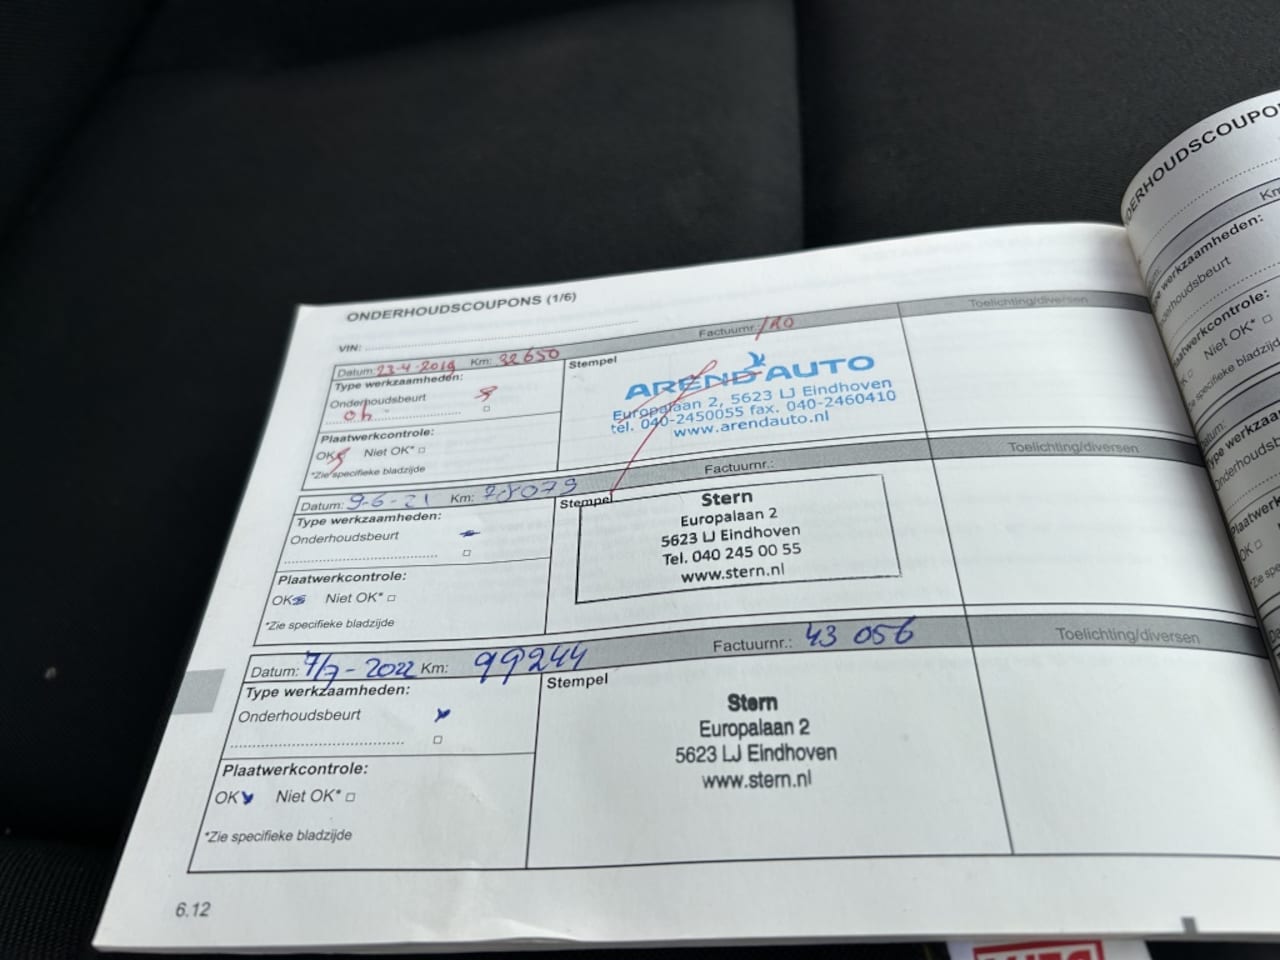 ONDERHOUDSCOUPONS (1/6)
VIN:
Datum: 23-4-2019 Km: 32650 Factuurnr. Toelichting/diversen
Type werkzaamheden: Stempel
Onderhoudsbeurt
oh
Plaatwerkcontrole:
OK Niet OK*
*Zie specifieke bladzijde
AREND AUTO
Europalaan 2, 5623 LJ Eindhoven
tel. 040-2450055 fax. 040-2460410
www.arendauto.nl
Datum: 9-6-21 Km: 78079 Factuurnr.: Toelichting/diversen
Type werkzaamheden: Stempel
Onderhoudsbeurt
Plaatwerkcontrole:
OK Niet OK*
*Zie specifieke bladzijde
Stern
Europalaan 2
5623 LJ Eindhoven
Tel. 040 245 00 55
www.stern.nl
Datum: 7/7-2022 Km: 99244 Factuurnr.: 43 056 Toelichting/diversen
Type werkzaamheden: Stempel
Onderhoudsbeurt
Plaatwerkcontrole:
OK Niet OK*
*Zie specifieke bladzijde
Stern
Europalaan 2
5623 LJ Eindhoven
www.stern.nl
6.12